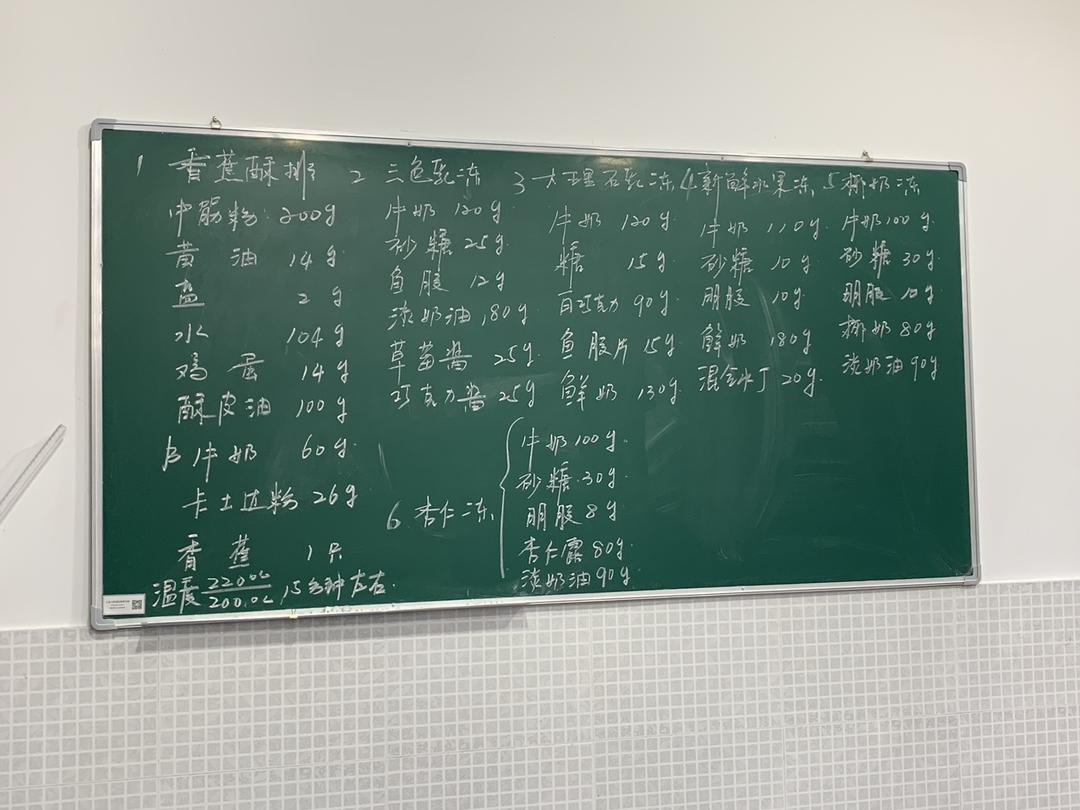 1 香蕉酥排
中筋粉 200g
黄油 14g
盐 2g
水 104g
鸡蛋 14g
酥皮油 100g
B 牛奶 60g
卡士达粉 26g
香蕉 1只
温度 220℃/200℃ 15分钟左右.
2 三色乳冻
牛奶 120g
砂糖 25g.
鱼胶 12g
淡奶油 180g.
草莓酱 25g.
巧克力酱 25g
3 大理石乳冻
牛奶 120g
糖 15g
白巧克力 90g.
鱼胶片 15g
鲜奶 130g
4 新鲜水果冻
牛奶 110g.
砂糖 10g
明胶 10g
鲜奶 180g
混合水丁 20g.
5 椰奶冻
牛奶 100g
砂糖 30g
明胶 10g
椰奶 80g
淡奶油 90g
6. 杏仁冻
牛奶 100g.
砂糖 30g
明胶 8g
杏仁露 80g.
淡奶油 90g